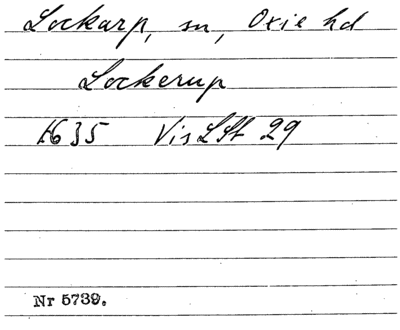 Lockarp, sn, Oxie hd
Lockerup
1635 VisLSt 29
Nr 5739.